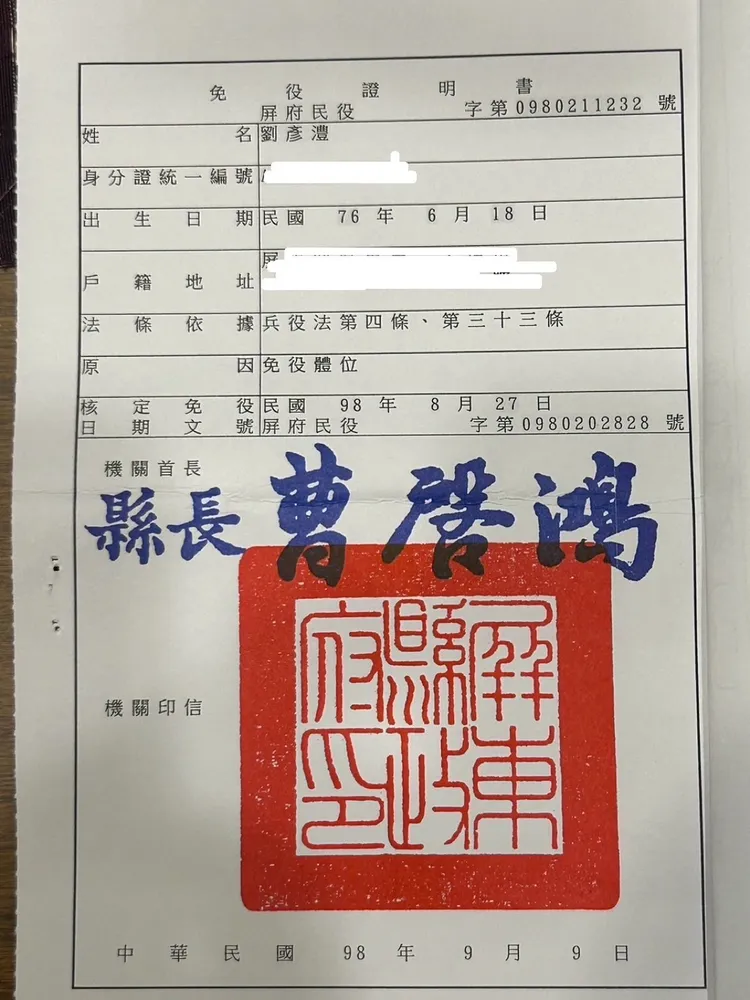 免役證明書
屏府民役 字第0980211232號
姓名 劉彥灃
身分證統一編號
出生日期 民國 76 年 6 月 18 日
屏
戶籍地址
法條依據 兵役法第四條、第三十三條
原因 免役體位
核定免役 民國 98 年 8 月 27 日
日期文號 屏府民役 字第0980202828號
機關首長
縣長 曹啓鴻
機關印信
屏東縣政府印
中華民國 98 年 9 月 9 日